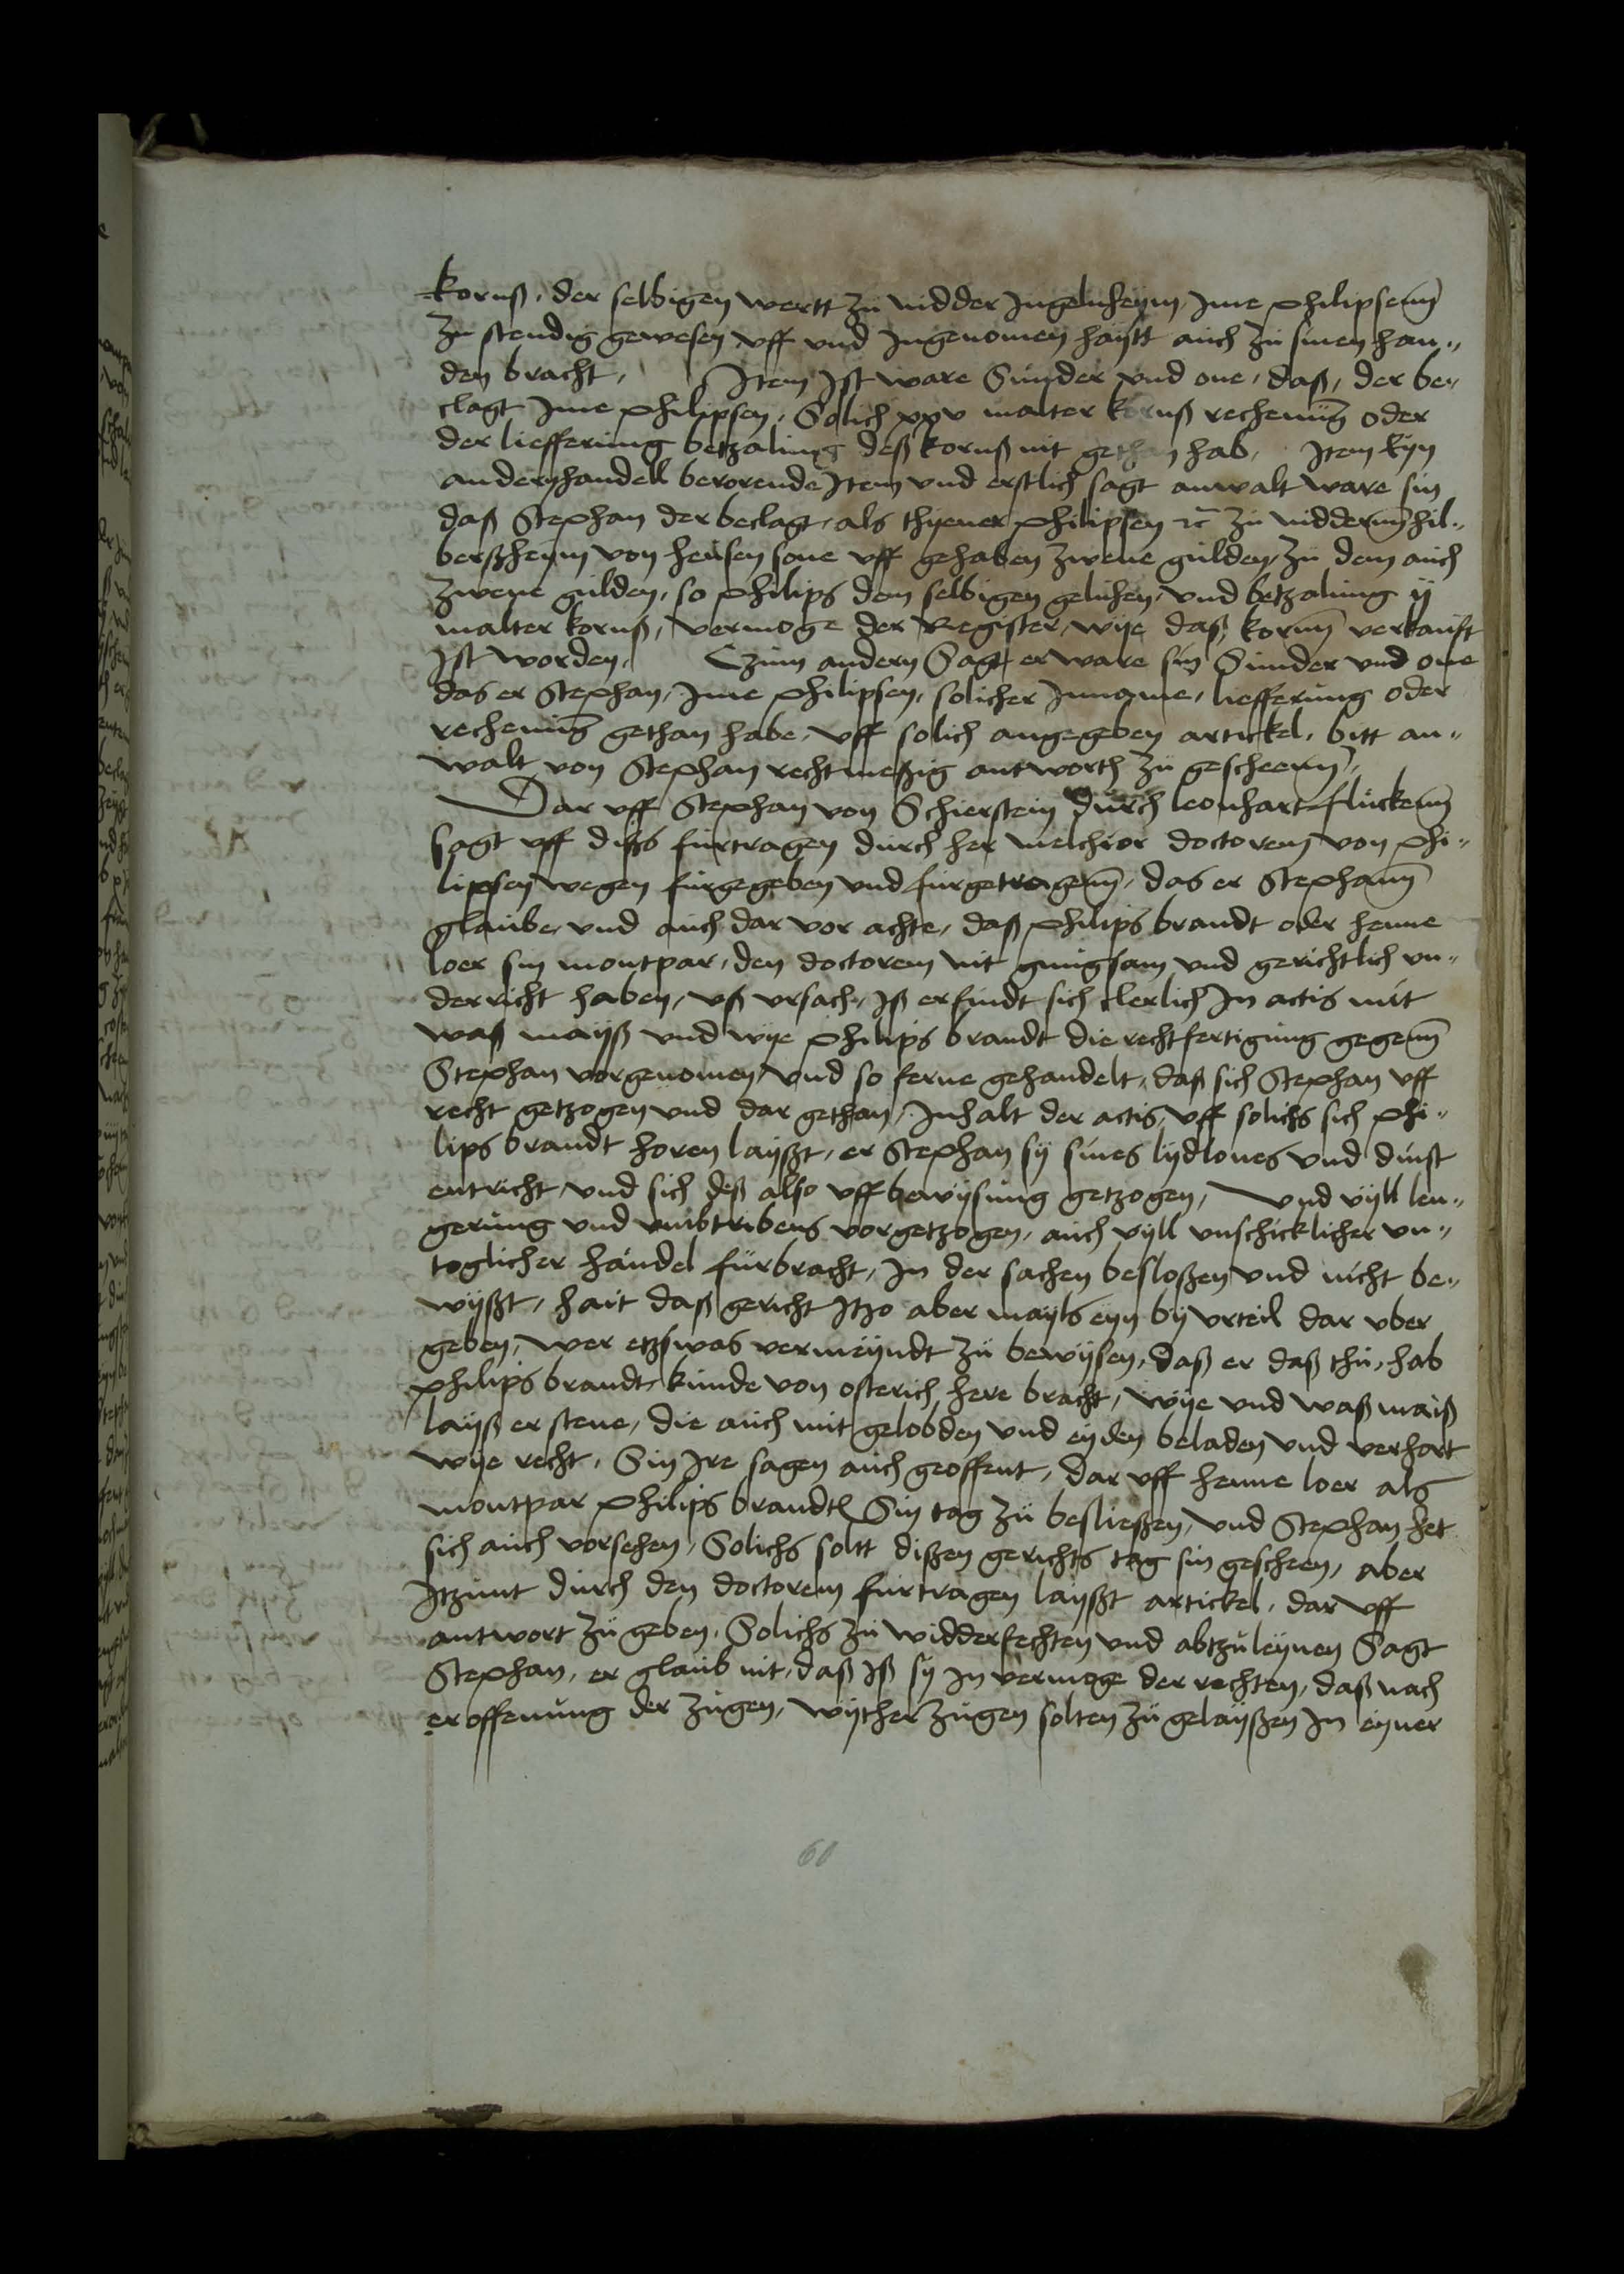 kornß, der selbigen wertt zü nidder Ingelnheÿm, Ime philipsenn
zu stendig gewesen vff vnd Ingenomen haÿtt auch zü sinen han„
den bracht, Item Ist ware Sünder vnd one, daß, der be„
clagt Ime philipsen, Solich xxv malter kornß rechenüng oder
der liefferüng betzalüng deß kornß nit gethan hab, Item Eyn
andern handell berorende Item vnd erstlich sagt anwalt ware sin
daß Stephan der beclagt, als thyener philipsen ꝛc zü niddernn hil„
berßheÿm von heüsen sone vff gehaben zwene gülden, zü dem auch
zwene gülden, so philips dem selbigen gelühen, vnd betzalüng ij
malter kornß, vermoge der Register, wÿe daß kornn verkaüft
Ist worden, Czüm andern Sagt er ware sin Sünder vnd one
das er Stephan, Ime philipsen, solicher Inname, liefferüng oder
rechenüng gethan habe, vff solich angegeben artickel, bitt an„
walt von Stephan rechtmeßig antworth zü gescheenn,
Dar vff Stephan von Schierstein dürch leonhart flückenn
sagt vff dißs fürtragen dürch her melchior doctorem von phi„
lipsen wegen fürgegeben vnd fürgetragenn, das er Stephann
glaübe, vnd auch dar vor achte, daß philips brandt oder henne
loer sin montpar, den doctorem nit gnügsam vnd gerichtlich vn„
derricht haben, vß vrsach, Iß erfindt sich clerlich In actis mit
waß maÿß vnd wÿe philips brandt die rechtfertigüng gegenn
Stephan vorgenomen, vnd so ferne gehandelt, daß sich Stephan vff
recht getzogen vnd dar gethan, Inhalt der actis, vff solichs sich phi„
lips brandt horen laÿßt, er Stephan sÿ sines lÿdlones vnd dinst
entricht, vnd sich deß also vff bewÿsüng getzogen, vnd vÿll len„
gerüng vnd vmbtribens vorgetzogen, auch vÿll vnschicklicher vn„
toglicher händel fürbracht, In der sachen besloßen vnd nicht be„
wÿßt, hait daß gericht Itzo aber maÿls eyn bÿ vrteil dar vber
geben, wer etzswas vermeÿndt zü bewÿsen, daß er daß thü, hab
philips brandt, künde von osterich here bracht, wÿe vnd waß maiß
laÿß er stene, die auch mit gelobden vnd eÿden beladen vnd verhort
wÿe recht, Sin Ire sagen auch geoffent, dar vff henne loer als
montpar philips brandtes Sin tag zü besließen, vnd Stephan het
sich auch vorsehen, Solichs soltt dißen gerichts tag sin gescheen, aber
Itzünt dürch den doctorem fürtragen laÿßt artickel, dar vff
antwort zü geben, Solichs zü widderfechten vnd abtzüleÿnen Sagt
Stephan, er glaüb nit, daß Iß sÿ In vermoge der rechten, daß nach
eroffenüng der zügen, wÿther zügen solten zü gelaÿßen In eÿner
60